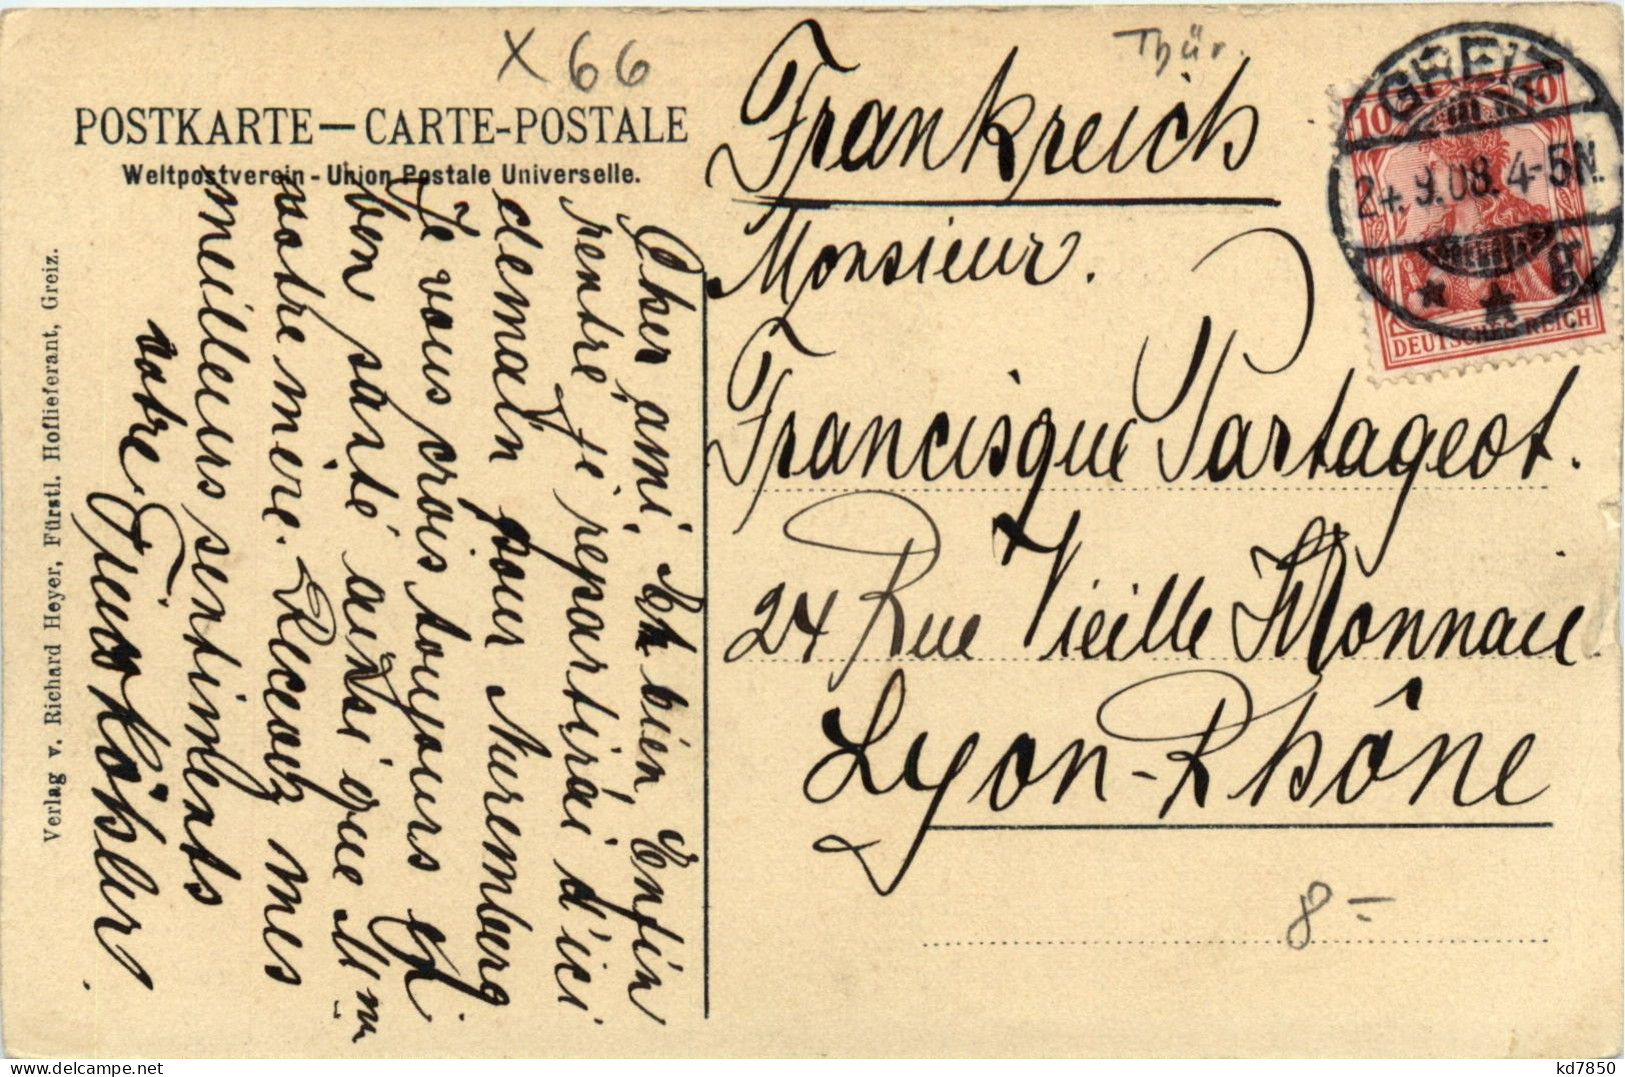 X 66
Thür.
POSTKARTE — CARTE-POSTALE
Weltpostverein - Union Postale Universelle.
Verlag v. Richard Heyer, Fürstl. Hoflieferant, Greiz.
GREIZ
24.9.08. 4-5N.
g
10 10
DEUTSCHES REICH
Frankreich
Monsieur.
Francisque Partageot.
24 Rue Vieille Monnaie
Lyon-Rhône
8 -
Cher ami, Et bien, Enfin
rentré, je repartirai d'ici
demain pour Nuremberg
Je vous crois toujours en
bon santé ainsi que Mm
votre mère. Recevez mes
meilleurs sentiments
votre
Köhler.
kd7850